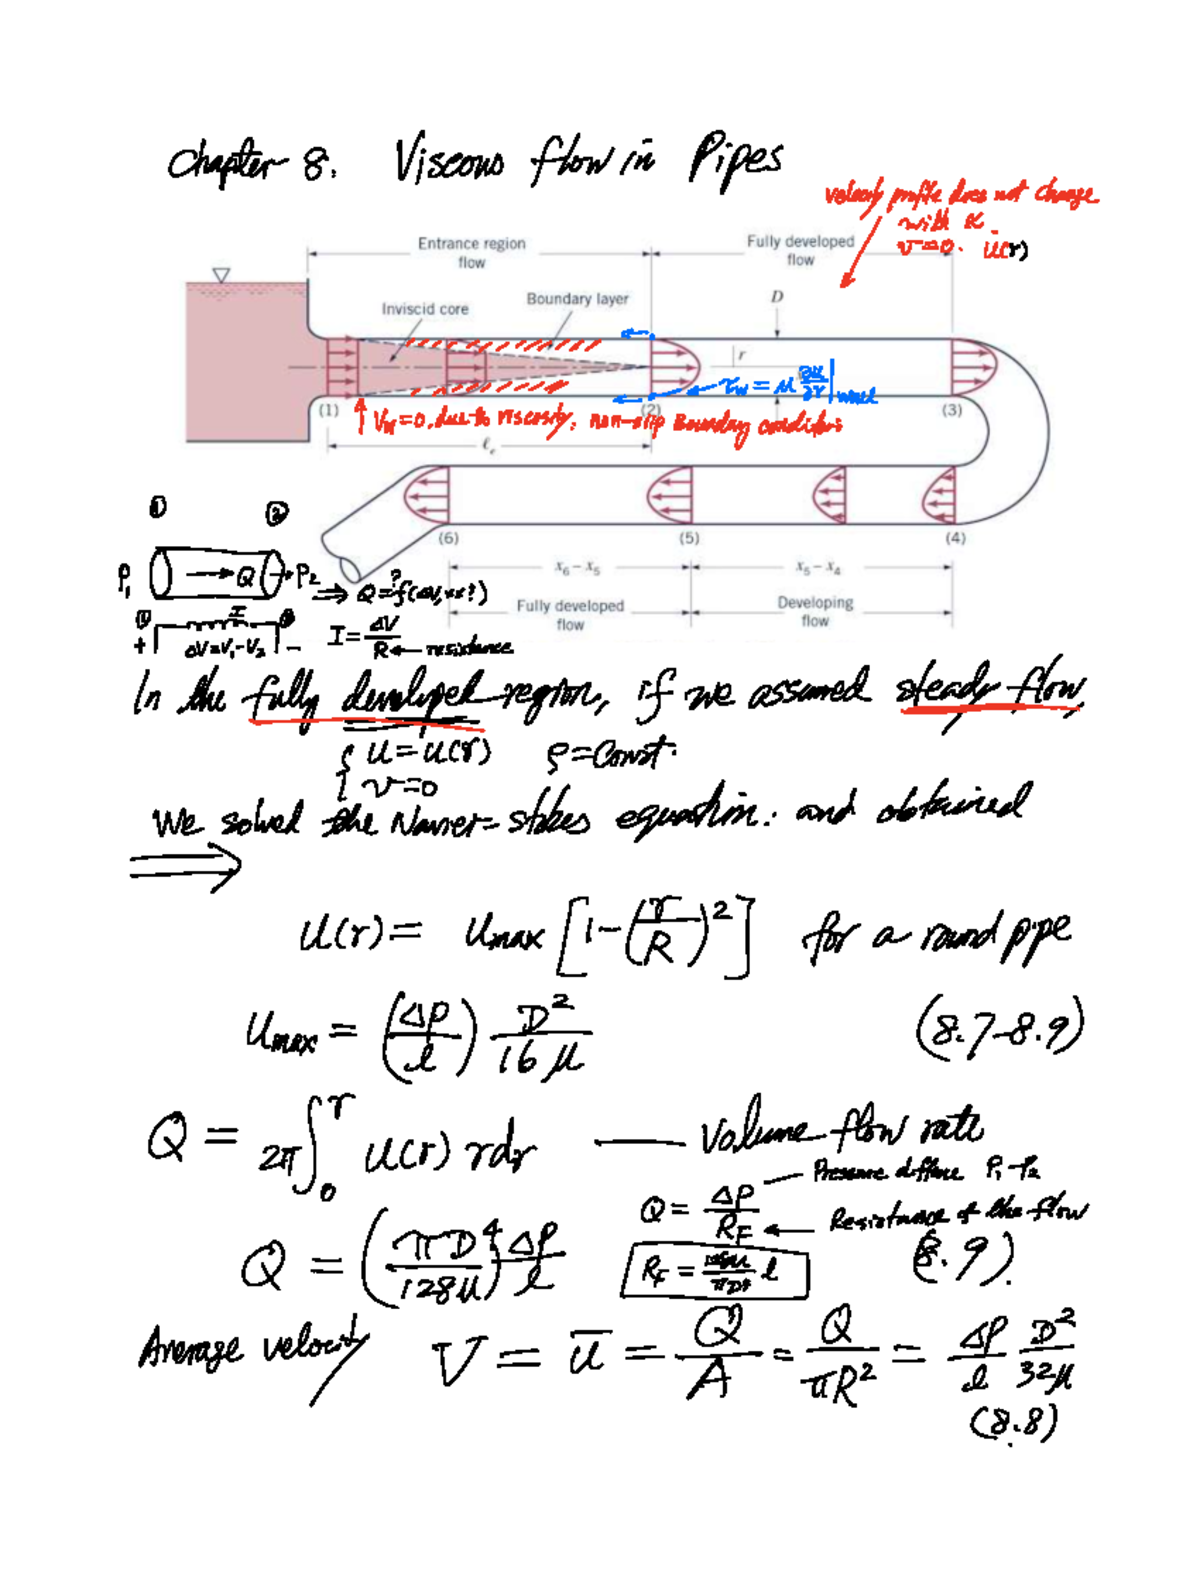 Chapter 8. Viscous flow in Pipes
velocity profile does not change
with x
v=0. u(r)
Entrance region
flow
Fully developed
flow
Inviscid core
Boundary layer
D
r
τw = μ ∂u/∂r |wall
(1)
(2)
(3)
Vw=0. due to viscosity, non-slip Boundary conditions
ℓe
① ②
(6)
(5)
(4)
P1 → Q → P2
x6 – x5
x5 – x4
⇒ Q =? f(ΔV, xx?)
Fully developed
flow
Developing
flow
① I ②
+ ΔV=V1-V2 −
I = ΔV/R ← resistance
In the fully developed region, if we assumed steady flow,
{ u = u(r) ρ = Const.
v = 0
We solved the Navier-Stokes equation. and obtained
⇒
u(r) = umax [1-(r/R)²] for a round pipe
umax = (Δp/ℓ) D²/16μ (8.7-8.9)
Q = 2π∫₀ʳ u(r) rdr — Volume flow rate
Q = ΔP/RF — Pressure P1-P2
← Resistance of the flow
Q = (πD⁴/128μ) ΔP/ℓ
RF = 128μ/πD⁴ ℓ
(8.9).
Average velocity V = ū = Q/A = Q/πR² = ΔP/ℓ D²/32μ
(8.8)